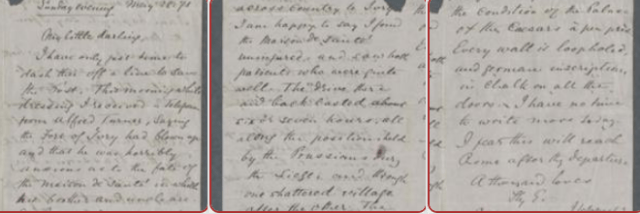 Sunday evening May 28. 71
My little darling,
I have only just time to
dash thee off a line to save
the Post. This morning, whilst
dressing I received a telegram
from Alfred Turner, saying
the Fort of Ivry had blown up
and that he was horribly
anxious as to the fate of
the Maison de Santé in which
his and uncle are
across country to Ivry
I am happy to say I found
the Maison de Santé
uninjured, and saw both
patients who were quite
well. The drive there
and back lasted about
six or seven hours, all
along the position held
by the Prussians during
the Siege and through
one shattered village
after the other. The
the condition of the Palace
of the Caesars à peu près
Every wall is loopholed,
and German inscriptions
in chalk on all the
doors. I have no time
to write more today.
I fear this will reach
Rome after thy departure
A thousand loves
Thy